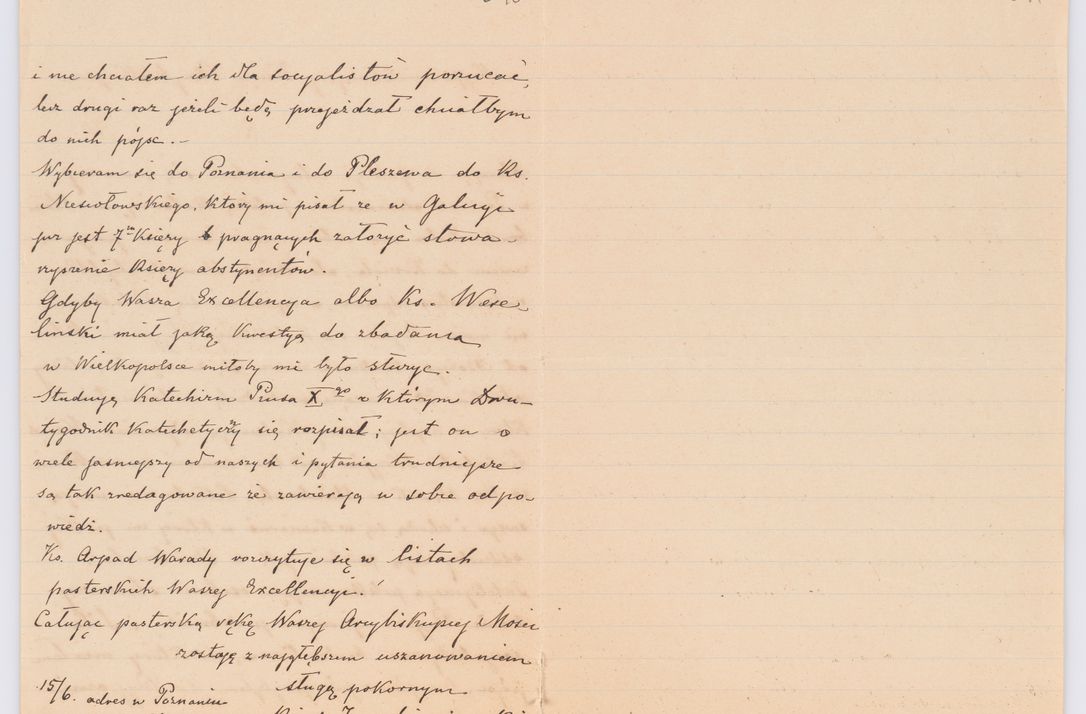 i nie chciałem ich dla socyalistów porzucać,
lecz drugi raz jeżeli będę przejeżdzał chciałbym
do nich pójsc. –
Wybieram się do Poznania i do Pleszewa do Ks.
Niesiołowskiego, który mi pisał ze w Galicyi
juz jest 7m Księży pragnących założyć stowa-
rzyszenie Księży abstynentów.
Gdyby Wasza Excellencya albo Ks. Wese-
liński miał jaką kwestyą do zbadania
w Wielkopolsce miłoby mi było służyc.
Studuję Katechizm Piusa X go o którym Dwu-
tygodnik Katechetyczny się rozpisał; jest on o
wiele jasniejszy od naszych i pytania trudniejsze
są tak zredagowane że zawierają w sobie odpo-
wiedź.
Ks. Arpad Warady rozczytuje się w listach
pasterskich Waszej Excellencyi.
Całując pasterską rękę Waszej Arcybiskupiej Mosci
zostaję z najgłębszem uszanowaniem
sługą pokornym
15/6. adres w Poznaniu